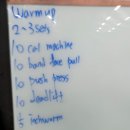 Warm up
2-3 sets
10 cal machine
10 band face pull
10 push press
10 deadlift
5 inchworm